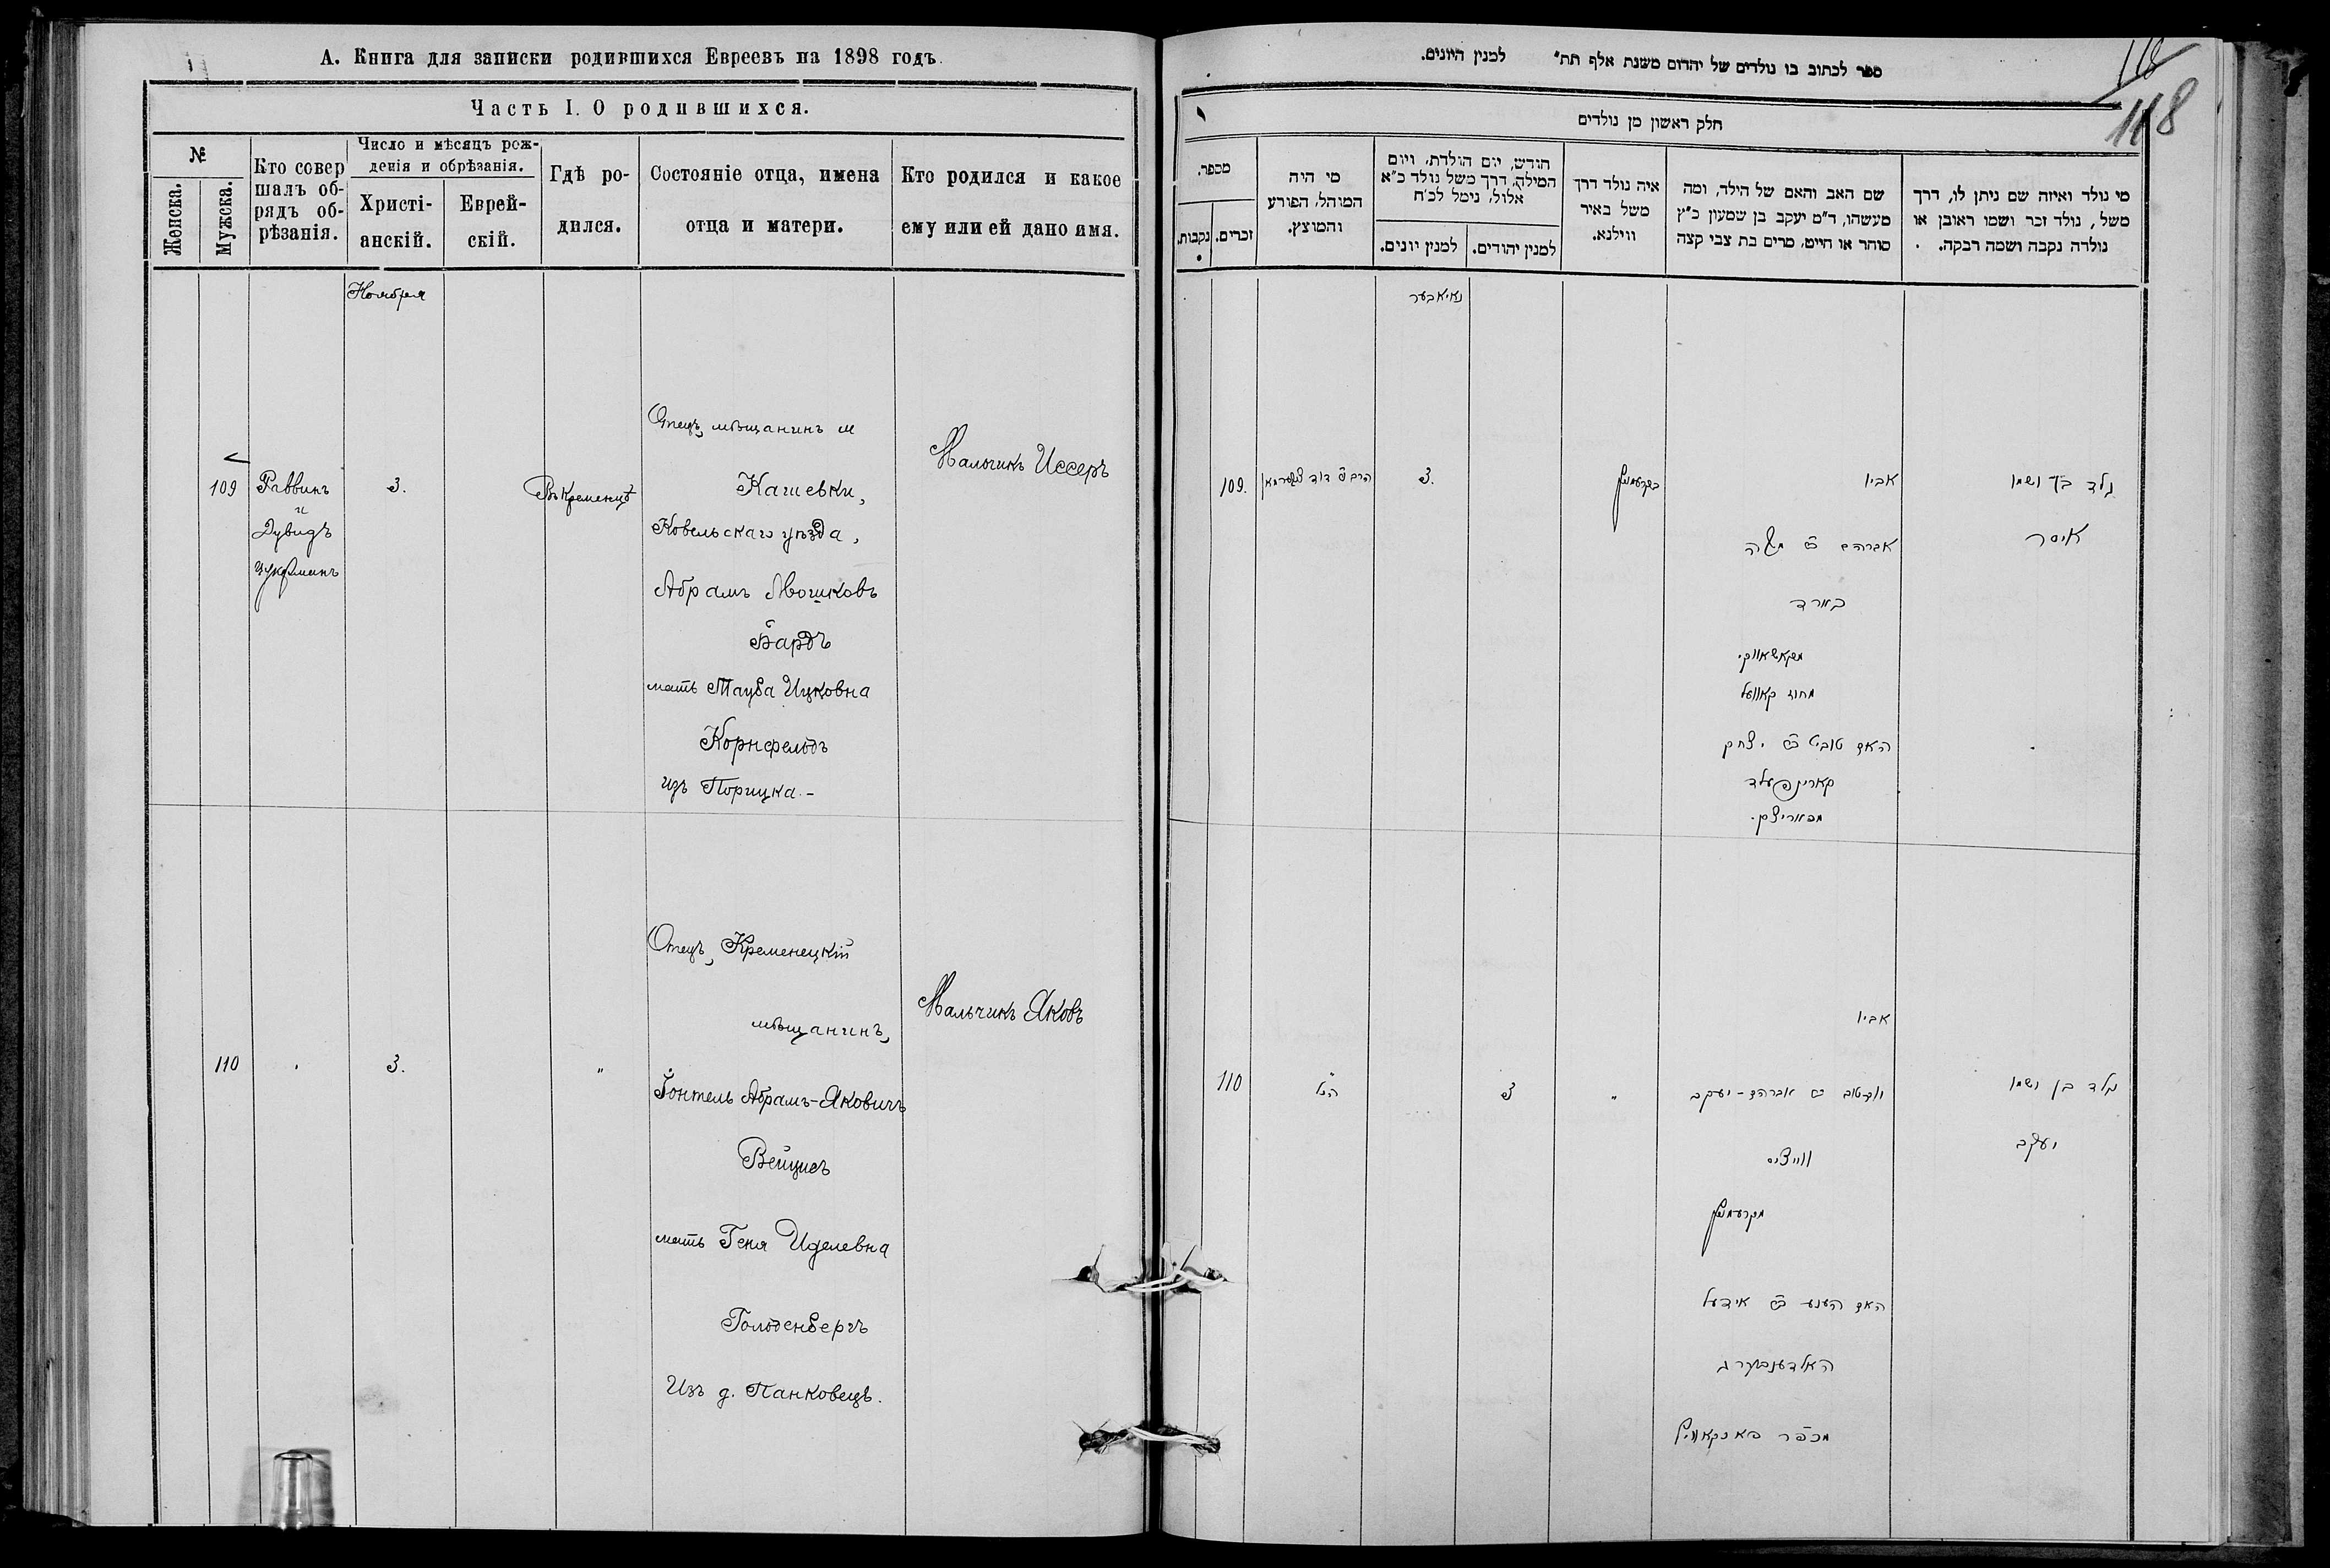 А. Книга для записки родившихся Евреевъ на 1898 годъ.
Часть I. О родившихся.
№
Женска.
Мужска.
Кто совер
шалъ об-
рядъ об-
рѣзанія.
Число и мѣсяцъ рож-
денія и обрѣзанія.
Христі-
анскій.
Еврей-
скій.
Гдѣ ро-
дился.
Состояніе отца, имена
отца и матери.
Кто родился и какое
ему или ей дано имя.
Ноября
109
Раввинъ
и
Дувидъ
Цукрманъ
3.
Въ Кременцѣ
Отецъ, мѣщанинъ м
Кашевки,
Ковельскаго уѣзда,
Абрамъ Мошковъ
Бардъ
мать Тауба Ицковна
Корнфельдъ
изъ Порицка.-
Мальчикъ Иссеръ
110
3.
"
Отецъ, Кременецкій
мѣщанинъ,
Іонтель Абрамъ-Яковичъ
Вейцисъ
мать Геня Иделевна
Гольденбергъ
Изъ д. Панковецъ.
Мальчикъ Яковъ
ספר לכתוב בו נולדים של יהדום משנת אלף תת" למנין היונים.
118
חלק ראשון מן נולדים
מספר.
נקבות.
זכרים.
מי היה
המוהל, הפורע
והמוצץ.
חודש, יום הולדת, ויום
המילה, דרך משל נולד כ"א
אלול, נימל לכ'ח
למנין יונים.
למנין יהודים.
איה נולד דרך
משל באיר
ווילנא.
שם האב והאם של הילד, ומה
מעשהו, ד"מ יעקב בן שמעון כ"ץ
סוחר או חייט, מרים בת צבי קצה
מי נולד ואיזה שם ניתן לו, דרך
משל, נולד זכר ושמו ראובן או
נולדה נקבה ושמה רבקה.
נאיאבער
109.
3.
אביו
אברהם ב"ר משה
בארד
מקאשאווקי
מחוז קאוועל
האם טובא ב"ר יצחק
קארנפעלד
מפאריצק.
נולד בן ושמו
איסר
110
הנ"ל
3
"
אביו
יום טוב ב"ר אברהם-יעקב
ווייציס
מקרעמניץ
האם הענע ב"ר אידעל
האלדענבערג
מכפר פאנקאוויץ
נולד בן ושמו
יעקב